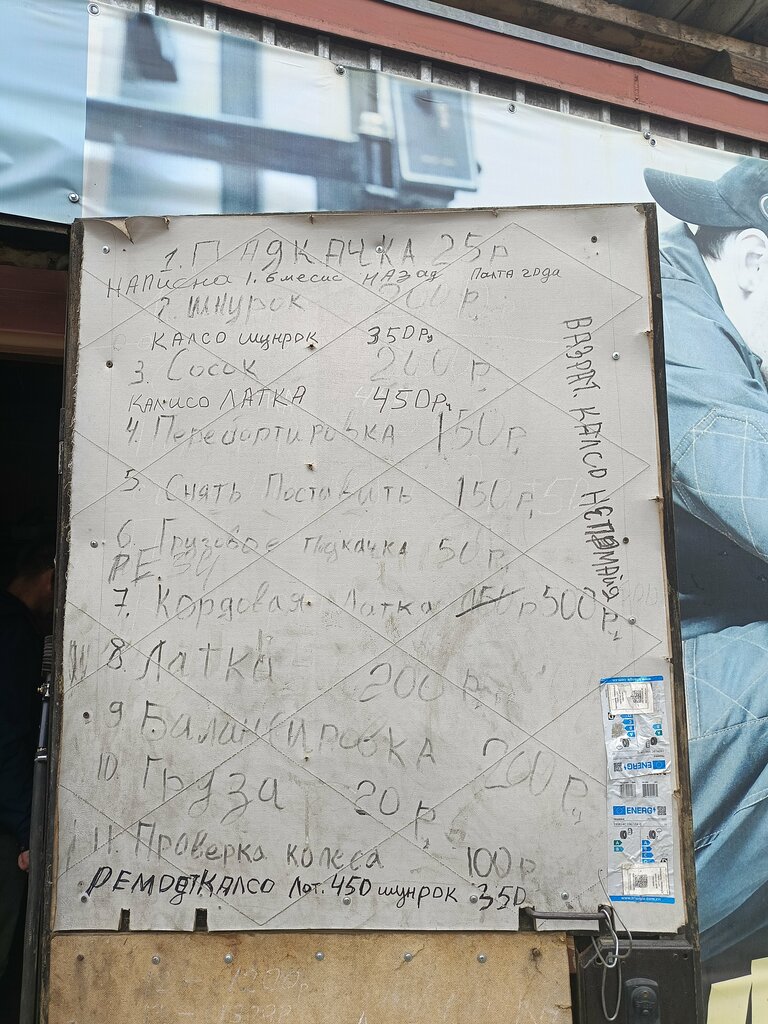 1. ПАДКАЧКА 25р
НАПИСНА 1.6 месис НАЗад Палта года
2. Шнурок 200 р,
КАЛСО шунрок 350р,
3. Сосок 200 р,
КАЛИСО ЛАТКА 450р,
4. Перебортировка 150р,
5. Снять Поставить 150р,
6. Грузовое подкачка 50р,
7. Кордовая Латка р500
8 Латка 200 р,
9 Балинсировка 200р,
10. Груза 20 р,
11. Проверка колеса 100р
РЕМОДТКАЛСО Лат. 450 шунрок 350
ВАЗРАТ. КАЛСО НЕПОМАЙО
ENERG
ENERG